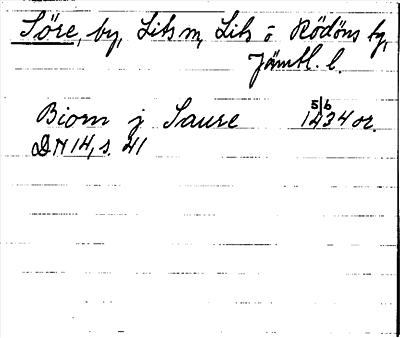 Söre, by, Lits sn, Lits o Rödöns tg,
Jämtl. l.
5/6
Biorn j Saure 1434 or.
DN 14, s. 41